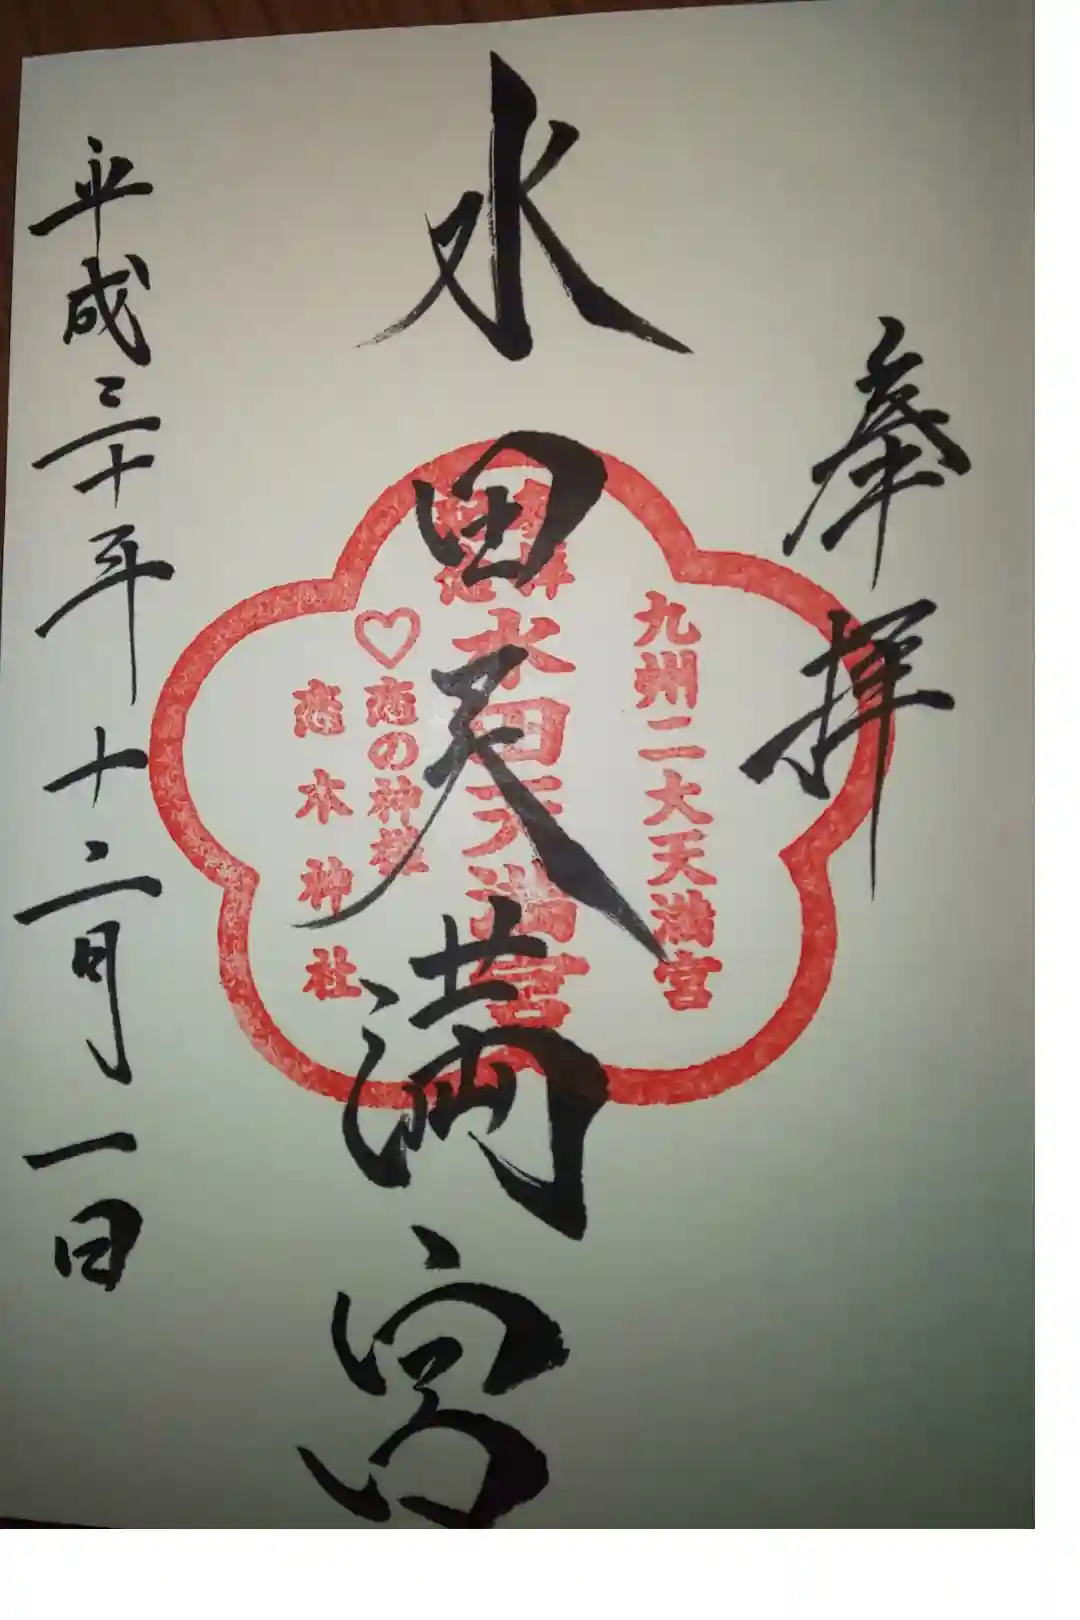 奉拝
九州二大天満宮
水田天満宮
水田天満宮
♡恋の神様
恋木神社
平成三十年十二月一日